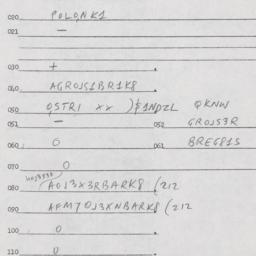 020 POLONK1
021 —
030 +
040 AGROJS1BR1K8
050 OSTRI XX )$1NDZL QKNW
051 — 052 GROJS3R
060 0 061 BREG81S
070 0
080 AOJ3X3RBARK8 (212
090 AFM70J3XNBARK8 (212
100 0
110 0